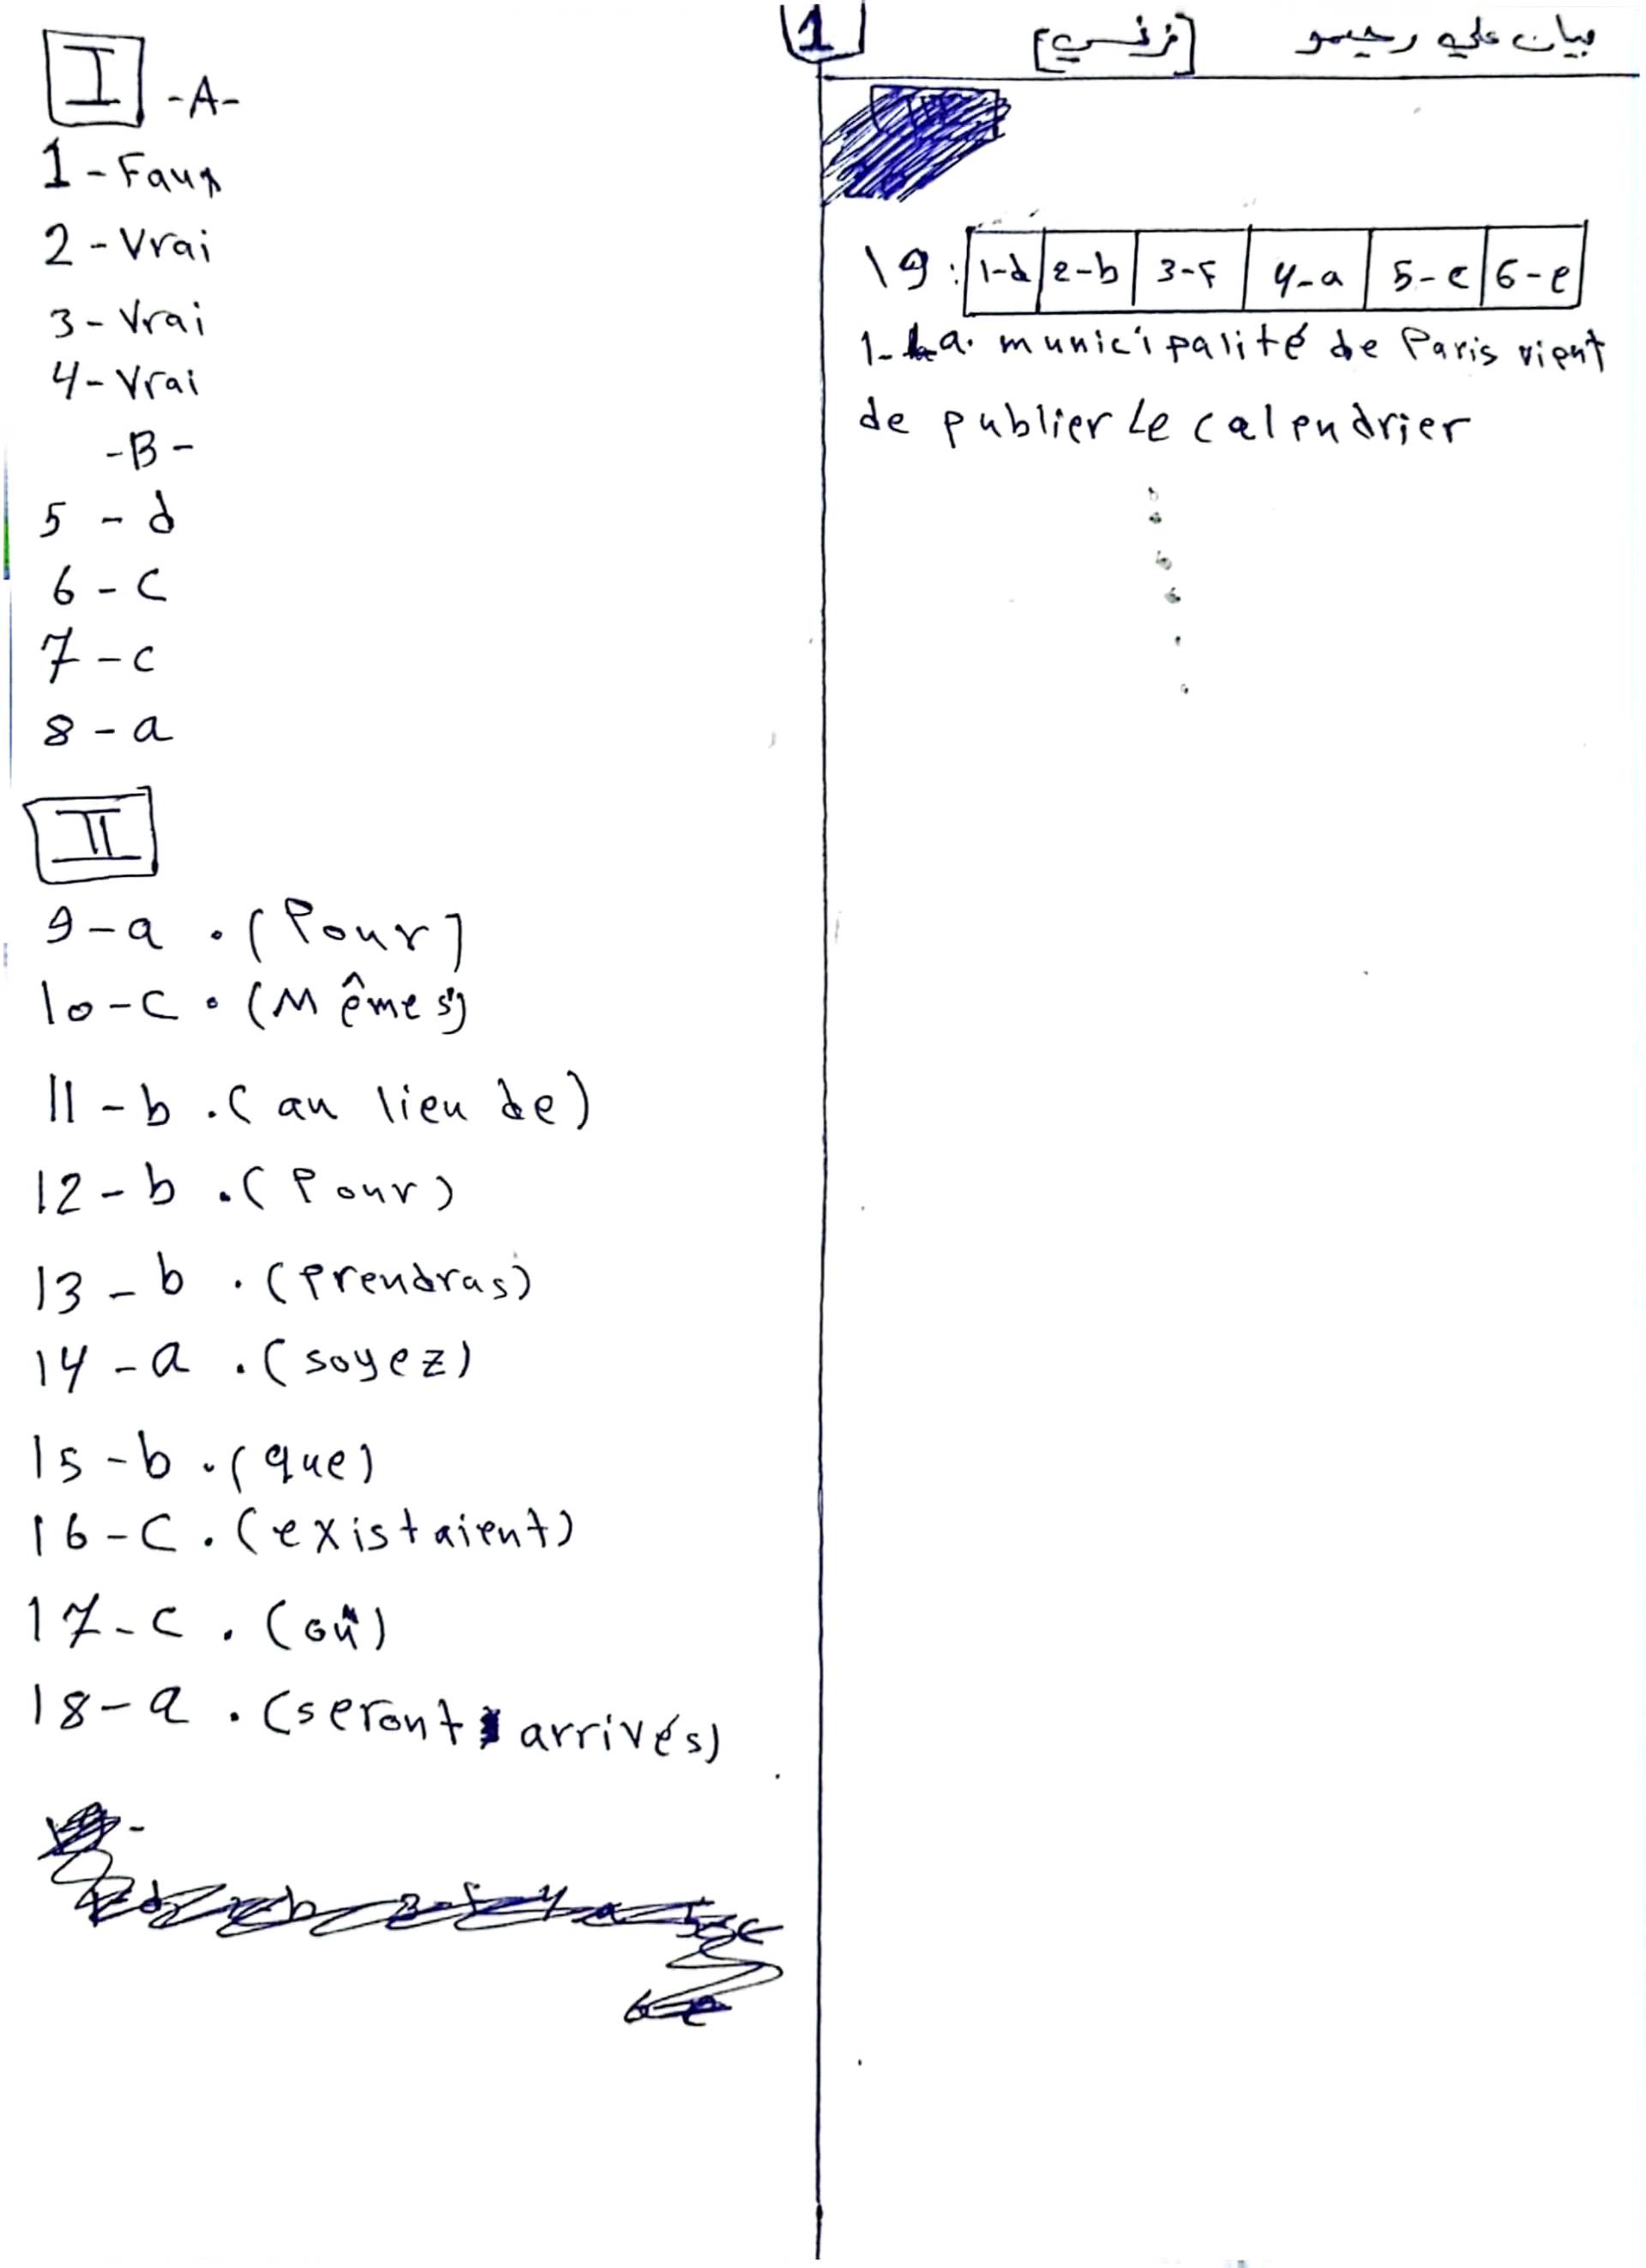 1
بيان علي رحيمو [فرنسي]
I -A-
1 - Faux
2 - Vrai
3 - Vrai
4 - Vrai
-B-
5 - d
6 - c
7 - c
8 - a
II
9 - a . (Pour)
10 - c . (Mêmes)
11 - b . (au lieu de)
12 - b . (Pour)
13 - b . (Prendras)
14 - a . (soyez)
15 - b . (que)
16 - C . (existaient)
17 - c . (où)
18 - a . (seront arrivés)
19 : 1-d 2-b 3-F 4-a 5-c 6-e
1- La municipalité de Paris vient
de publier Le calendrier